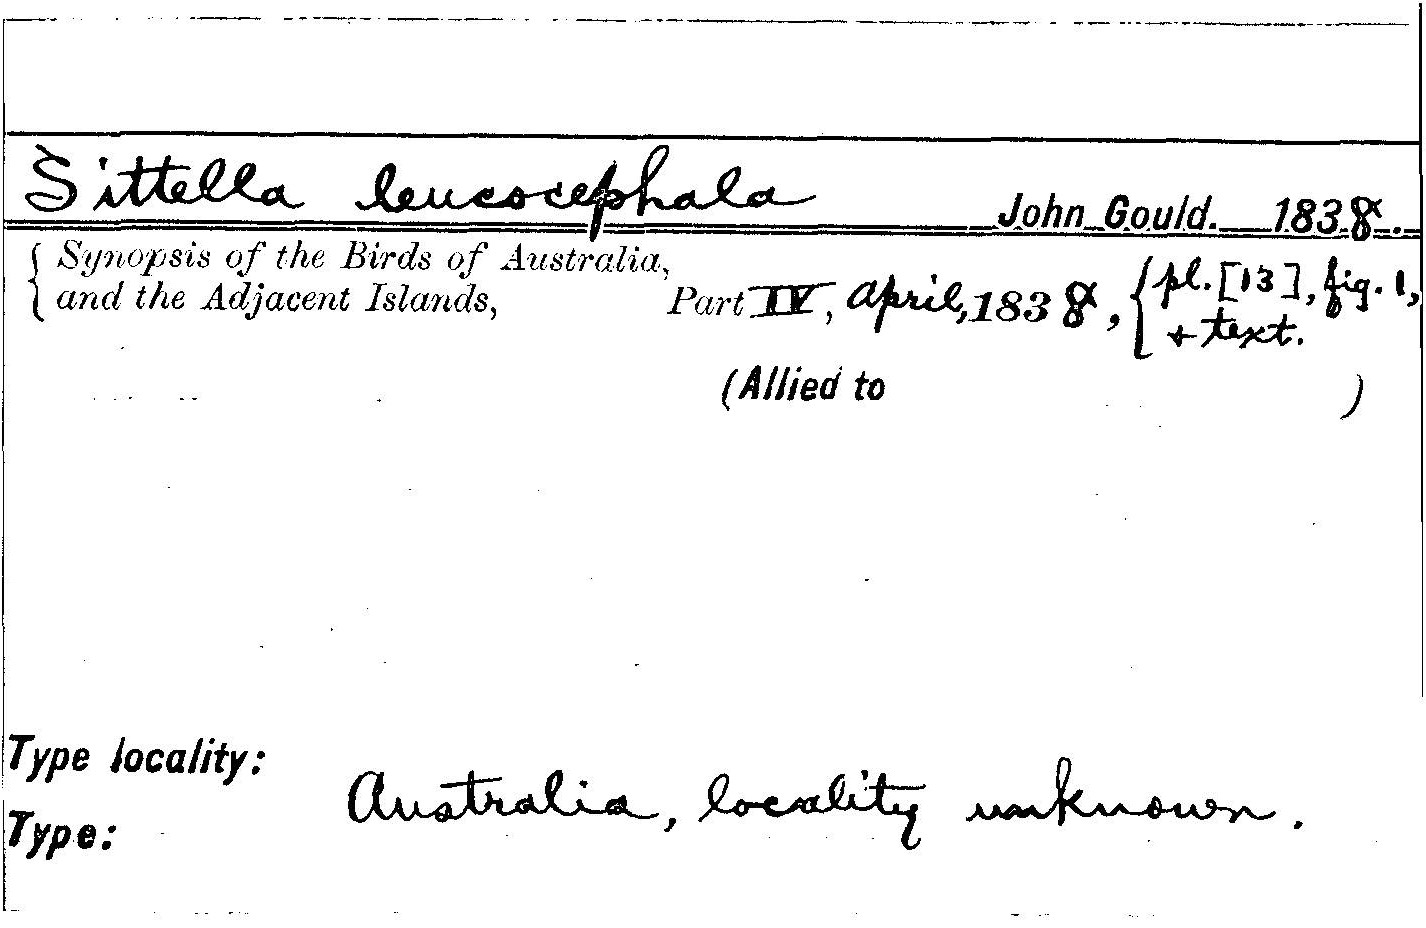 Sittella leucocephala John Gould. 1838.
{ Synopsis of the Birds of Australia,
and the Adjacent Islands, Part IV, April, 1838, { pl. [13], fig. 1,
+ text.
(Allied to )
Type locality:
Australia, locality unknown.
Type: